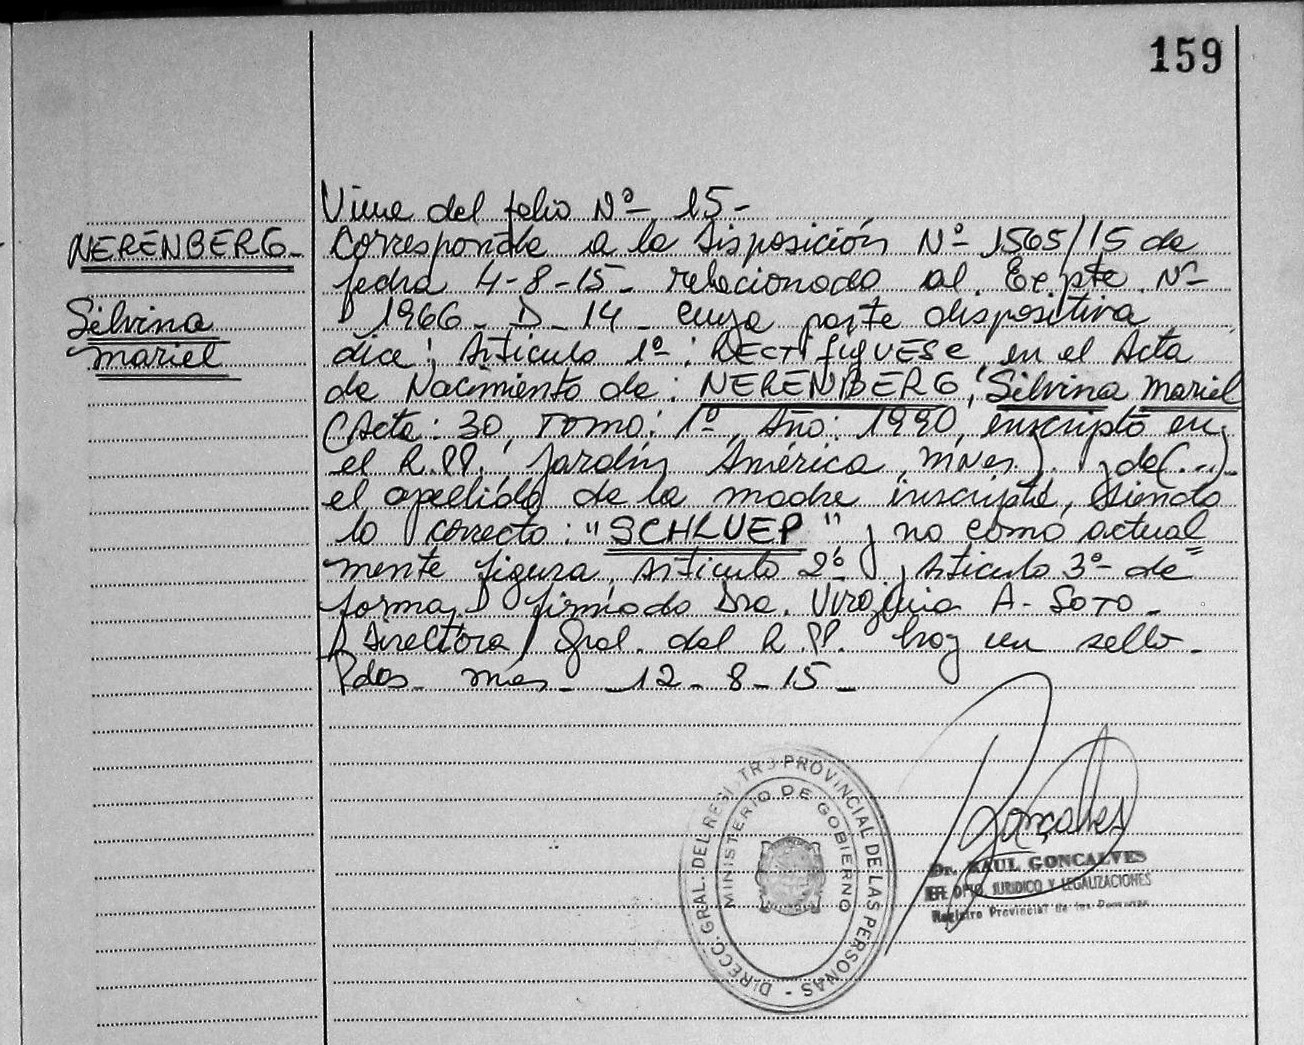 159
NERENBERG-
Silvina
Mariel
Viene del folio Nº 15-
Corresponde a la Disposición Nº 1565/15 de
fecha 4-8-15- relacionado al Expte Nº
1966- D- 14- cuya parte dispositiva
dice: Articulo 1º: RECTIFIQUESE en el Acta
de Nacimiento de: NERENBERG, Silvina Mariel
(Acta: 30, Tomo: 1º, Año: 1990, inscripto en
el R.PP. Jardín América, Mnes). de(...)-
el apellido de la madre inscripta, siendo
lo correcto: "SCHLUEP" y no como actual=
mente figura. Articulo 2º y Articulo 3º de
forma, firmado Dra. Virginia A- Soto-
Directora Gral. del R.PP. hay un sello-
Pdas- Mnes- 12-8-15-
DIRECC. GRAL. DEL REGISTRO PROVINCIAL DE LAS PERSONAS -
MINISTERIO DE GOBIERNO
Goncalves
Dr. RAUL GONCALVES
DPTO. JURIDICO Y LEGALIZACIONES
Registro Provincial de las Personas